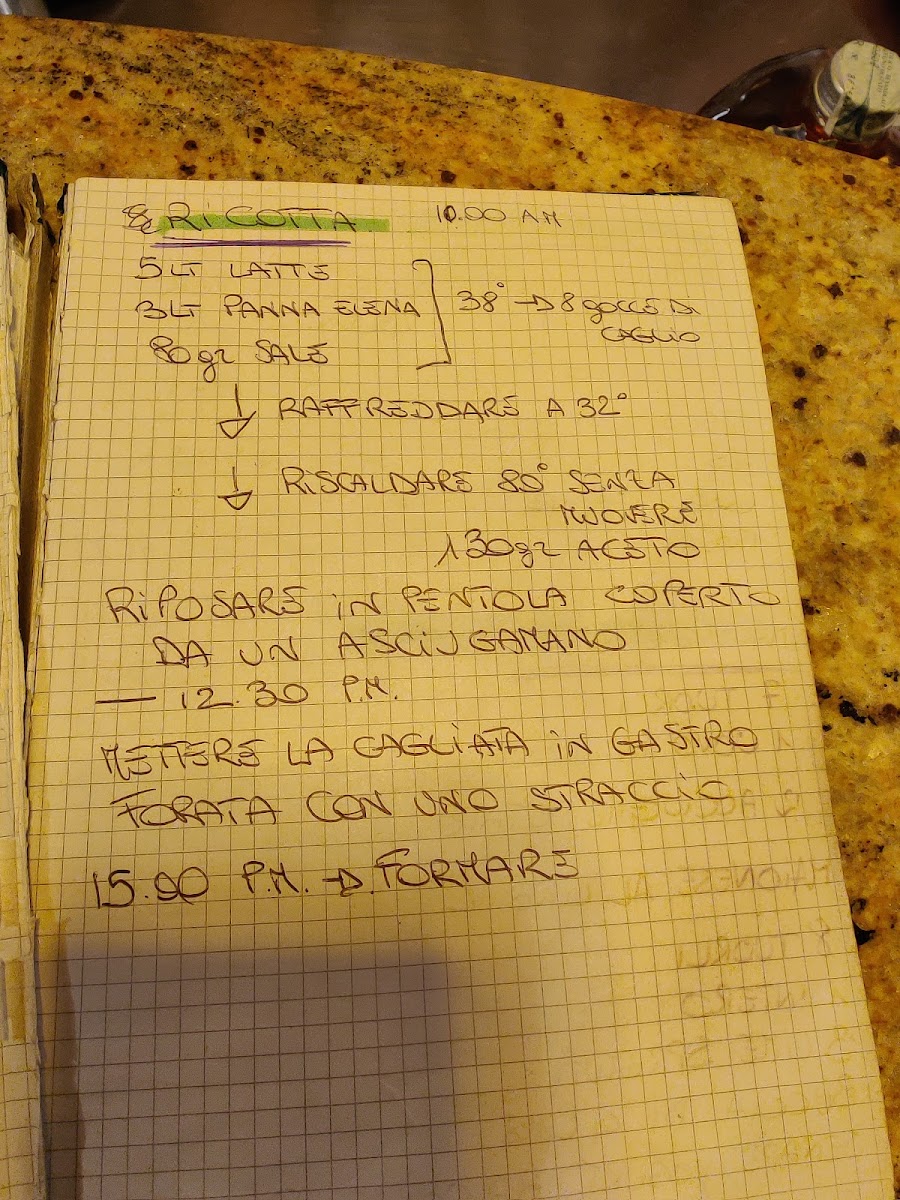 RICOTTA 10.00 AM
5 LT LATTE
3 LT PANNA ELENA
80 gr SALE
38° → 8 gocce di
CAGLIO
↓ RAFFREDDARE A 32°
↓ RISCALDARE 80° SENZA
MUOVERE
130 gr ACETO
RIPOSARE IN PENTOLA COPERTO
DA UN ASCIUGAMANO
— 12.30 P.M.
METTERE LA CAGLIATA IN GASTRO
FORATA CON UNO STRACCIO
15.00 P.M. → FORMARE